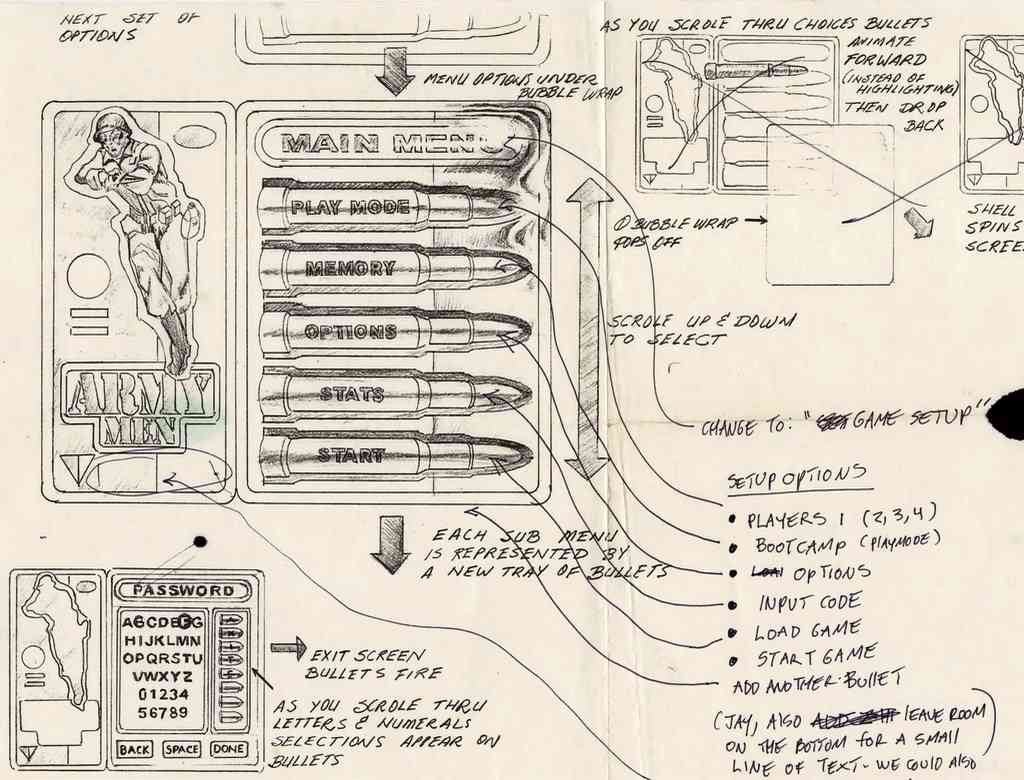 NEXT SET OF
OPTIONS
MENU OPTIONS UNDER
BUBBLE WRAP
AS YOU SCROLE THRU CHOICES BULLETS
ANIMATE
FORWARD
(INSTEAD OF
HIGHLIGHTING)
THEN DROP
BACK
① BUBBLE WRAP
POPS OFF
SHELL
SPINS
SCREE
MAIN MENU
PLAY MODE
MEMORY
OPTIONS
STATS
START
ARMY
MEN
SCROLE UP & DOWN
TO SELECT
CHANGE TO: "GAME SETUP"
SETUP OPTIONS
• PLAYERS 1 (2,3,4)
• BOOTCAMP (PLAYMODE)
• OPTIONS
• INPUT CODE
• LOAD GAME
• START GAME
ADD ANOTHER BULLET
(JAY, ALSO LEAVE ROOM
ON THE BOTTOM FOR A SMALL
LINE OF TEXT - WE COULD ALSO
EACH SUB MENU
IS REPRESENTED BY
A NEW TRAY OF BULLETS
PASSWORD
ABCDEFG
HIJKLMN
OPQRSTU
VWXYZ
01234
56789
BACK SPACE DONE
EXIT SCREEN
BULLETS FIRE
AS YOU SCROLE THRU
LETTERS & NUMERALS
SELECTIONS APPEAR ON
BULLETS